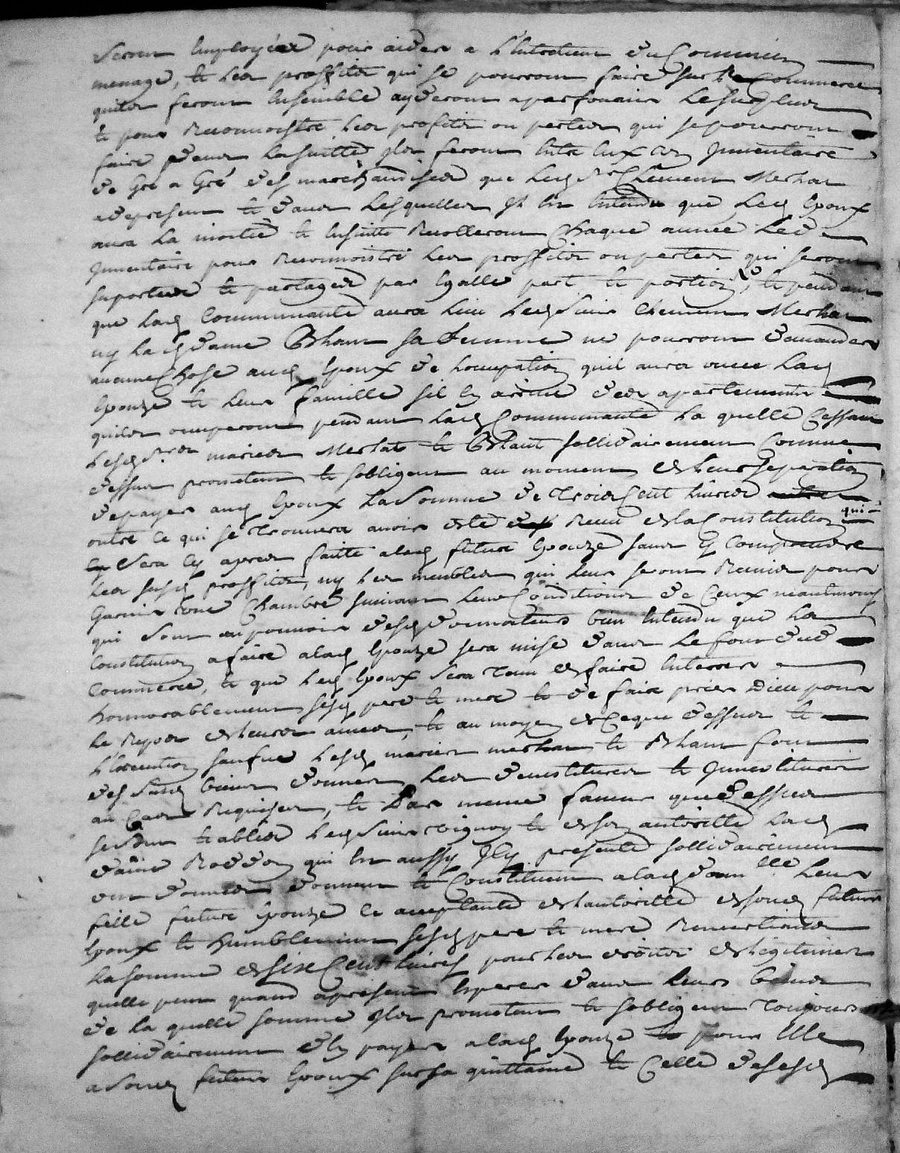 seront employées pour aider a l'entretient du Commun
menage, et les proffits qui se pourront faire sur le Commerce
quils feront Ensemble ayderont a parfournir le surplus
et pour Reconnoistre les profits ou pertes qui se pourront
faire dans la suitte ils feront Entre Eux un Inventaire
de Gré a Gré des marchandises que lesd. Srs Clement Merhat
a depresent et dans lesquelles il Est Entendu que led. Epoux
aura la moitié et Ensuitte Recolleront Chaque année led.
Inventaire pour Reconnoistre les proffits ou pertes qui seront
suportées et partagés par Egalle part et portion, et pendant
que lad. Communauté aura lieu led. sieur Clement Merhat
ny lad. dame Bhant sa femme ne pourront demander
aucune Chose aud. Epoux de Locupation quil aura avec lad.
Epouze et leur famille sil En arrive des apartements
quiles occuperont pendant lad. Communauté la quelle Cessant
lesd. Srs mariés Merhat et Bhant sollidairement Comme
dessus promettent et sobligent au moment de leur separation
de payer aud. Epoux la somme de Trois Cent livres
outre ce qui se trouvera avoir esté Receu de la Constitution qui
sera Cy apres faitte a lad. future Epouze sans y Comprendre
les susd. proffits, ny les meubles qui leur seront Remis pour
Garnir une Chambre suivant leur Condition de Ceux neantmoins
qui sont au pouvoir desd. donnateurs bien Entendu que la
Constitution a faire a lad. Epouze sera mise dans le fond dud.
Commerce, et que led. Epoux sera tenu de faire Enterrer
honnorablement sesd. pere et mere et de faire prier Dieu pour
le Repos de leurs ames, et au moyen de Ceque dessus et
l'Execution sauf que lesd. mariés merhat et Bhant sont
desd. biens donnés les devestitures et Investitures
au Cas Requises, et Par meme faveur que dessus
se sont Etablis led. sieur et de son autorité lad.
daine qui Est aussy Icy presente sollidairement
ont donné donnent et Constituent a lad. Dlle leur
fille future Epouze Ce acceptante de lautorité de sond. futur
Epoux et humblement sesd. pere et mere Remerciant
la somme de Six Cent livres pour les droits de legitime
quelle peut quand apresent Esperer dans leurs biens
de la quelle somme ils promettent et sobligent toujours
sollidairement d'En payer a lad. Epouze et pour Elle
a sond. futur Epoux sur sa quittance et Celle de sesd.